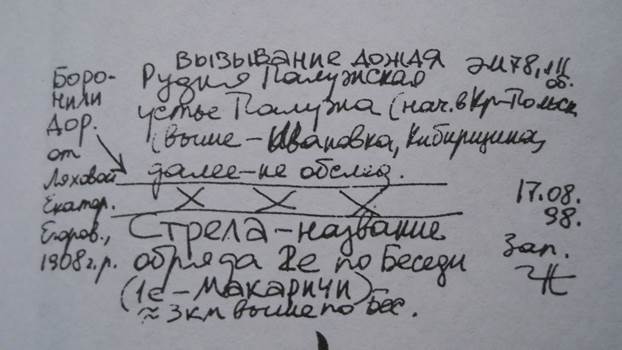 Вызывание дождя
Боро-
нили
дор.
от
Ляховой
Екатер.
Егоров.,
1908 г.р.
Рудня Палужская
устье Палужа (нач. в Кр-Польск
(выше – Ивановка, Кибирщина,
далее – не обслед.
эм78,
об.
17.08.
98.
Зап.
Стрела – название
обряда 2е по Беседи
(1е – Макаричи)
≈ 3км выше по Бес.